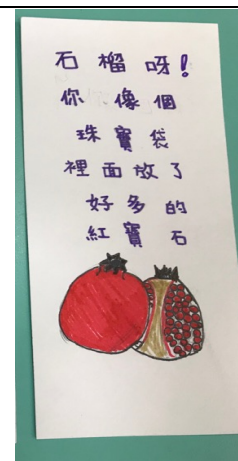 石榴呀!
你像個
珠寶袋
裡面放了
好多的
紅寶石